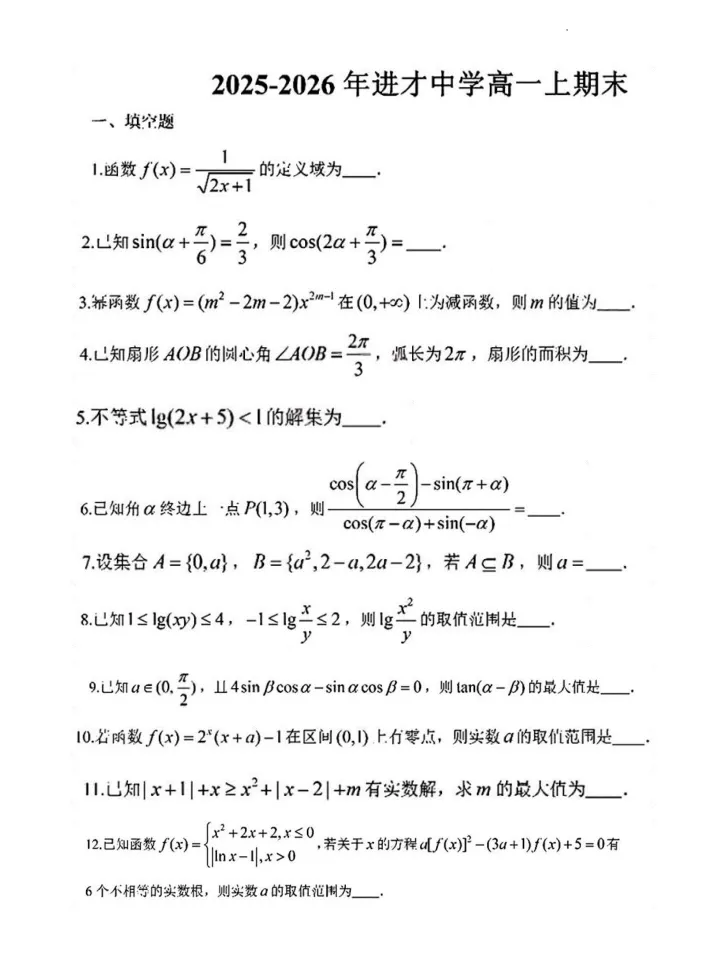 2025-2026 年进才中学高一上期末
一、填空题
1.函数 f(x) = \frac{1}{\sqrt{2x+1}} 的定义域为____.
2.已知 sin(α + \frac{π}{6}) = \frac{2}{3}，则 cos(2α + \frac{π}{3}) = ____.
3.幂函数 f(x) = (m² − 2m − 2)x^{2m−1} 在 (0,+∞) 上为减函数，则 m 的值为____.
4.已知扇形 AOB 的圆心角 ∠AOB = \frac{2π}{3}，弧长为 2π，扇形的面积为____.
5.不等式 lg(2x + 5) < 1 的解集为____.
6.已知角 α 终边上一点 P(1,3)，则 \frac{cos(α − \frac{π}{2}) − sin(π + α)}{cos(π − α) + sin(−α)} = ____.
7.设集合 A = {0, a}，B = {a², 2 − a, 2a − 2}，若 A ⊆ B，则 a = ____.
8.已知 1 ≤ lg(xy) ≤ 4，−1 ≤ lg\frac{x}{y} ≤ 2，则 lg\frac{x²}{y} 的取值范围是____.
9.已知 a ∈ (0, \frac{π}{2})，且 4sin β cos α − sin α cos β = 0，则 tan(α − β) 的最大值是____.
10.若函数 f(x) = 2^x(x + a) − 1 在区间 (0,1) 上有零点，则实数 a 的取值范围是____.
11.已知 | x + 1 | + x ≥ x² + | x − 2 | + m 有实数解，求 m 的最大值为____.
12.已知函数 f(x) = \begin{cases} x² + 2x + 2, x ≤ 0 \\ |ln x − 1|, x > 0 \end{cases}，若关于 x 的方程 a[f(x)]² − (3a + 1)f(x) + 5 = 0 有
6 个不相等的实数根，则实数 a 的取值范围为____.